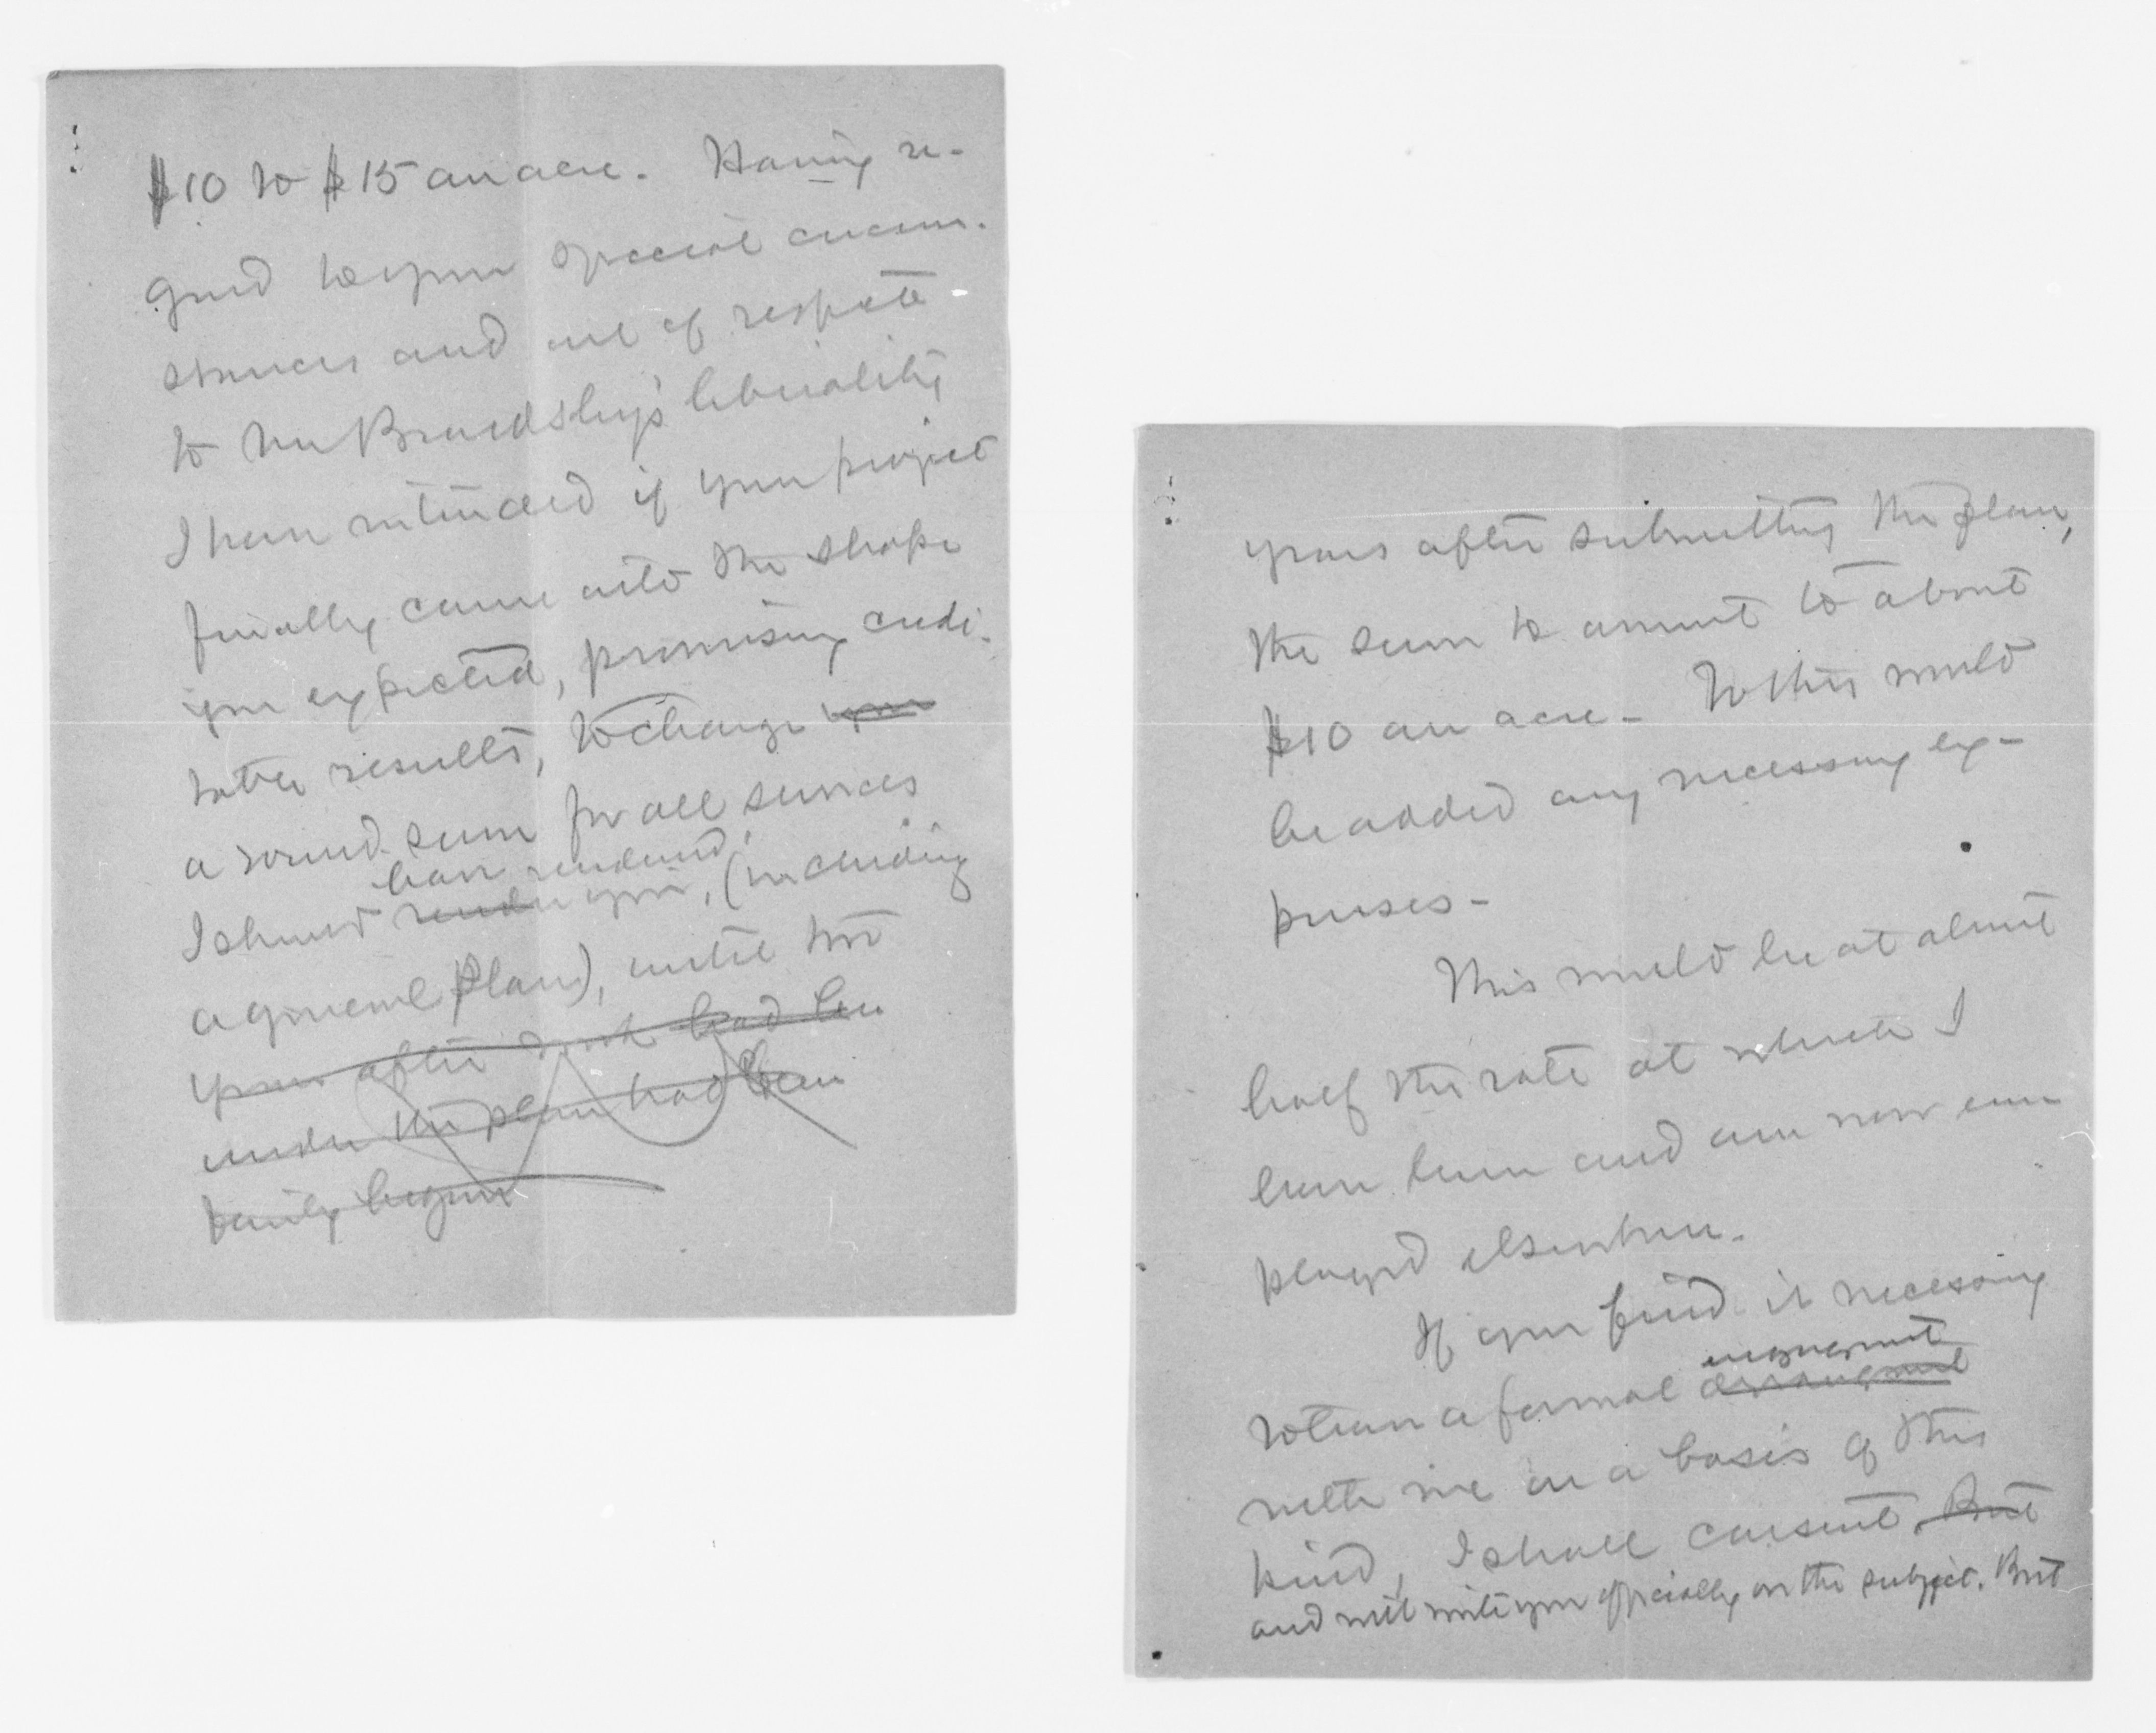 $10 to $15 an acre. Having re-
gard to your special circum-
stances and out of respect
to Mr Beardsley's liberality
I have intended if your project
finally came into the shape
you expected, promising credi-
table results, to charge you
a round sum for all services
have rendered
I should render you, (including
a general plan), until two
years after work had been
under the plan had been
fairly begun
years after submitting the plan,
the sum to amount to about
$10 an acre - To this would
be added any necessary ex-
penses -
This would be at about
half the rate at which I
have been and am now em-
ployed elsewhere.
If you find it necessary
engagement
to have a formal arrangement
with me on a basis of this
kind, I shall consent. But
and will write you officially on the subject. But